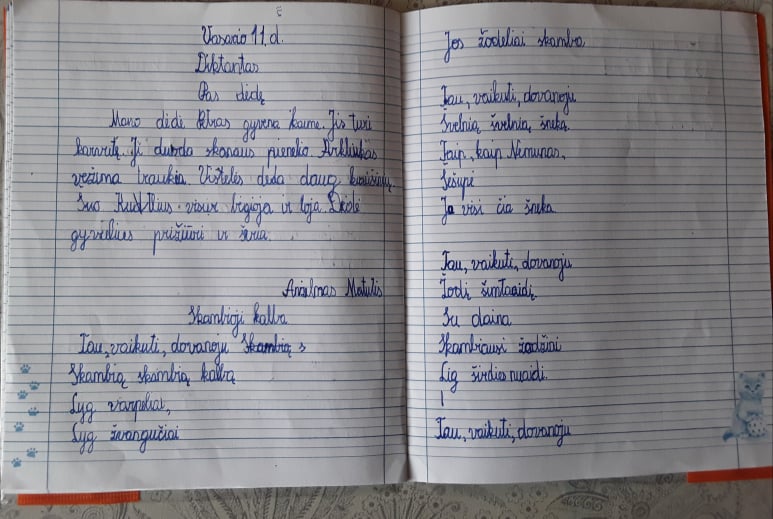 Vasario 11 d.
Diktantas
Pas dėdę
Mano dėdė Petras gyvena kaime. Jis turi
karvutę. Ji duoda skanaus pieneko. Arkliukas
vežimą traukia. Vištelės deda daug kiaušinių.
Šuo visur bėgioja ir loja. Dėdė
gyvulius prižiūri ir šeria.
Anzelmas Matutis
Skambioji kalba
Tau, vaikuti, dovanoju Skambią
Skambią skambią kalbą
Lyg varpeliai,
Lyg žvangučiai
Jos žodeliai skamba
Tau, vaikuti, dovanoju
Švelnią švelnią šneką.
Taip, kaip Nemunas,
Šešupė
Ja visi čia šneka.
Tau, vaikuti, dovanoju
Žodį šimtaaidį.
Su daina
Skambiausi žodžiai
Lig širdies nuaidi.
Tau, vaikuti, dovanoju